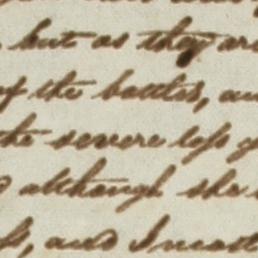 but as they are
of the battles, an
the severe loss
although she
and I most